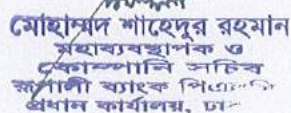 মোহাম্মদ শাহেদুর রহমান
মহাব্যবস্থাপক ও
কোম্পানি সচিব
রূপালী ব্যাংক
প্রধান কার্যালয়,